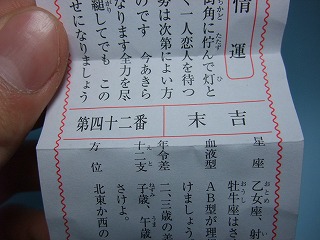 情運
街角に佇んで灯と
く一人恋人を待つ
は次第によい方
のです 今あきら
なります全力を尽
してでも この
せになりましょう
末吉
第四十二番
星座 乙女座、射
牡牛座はさ
血液型 AB型が理
けましょう
年令差 二、三歳の
十二支 子歳、午歳
さけよ。
方位 北東か西の